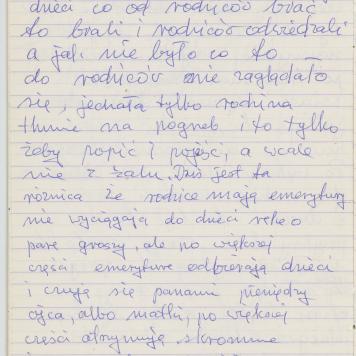 dzieci co od rodziców brać
to brali i rodziców odwiedzali
a jak nie było co to
do rodziców nie zaglądało
się, jechała tylko rodzina
tłumie na pogrzeb i to tylko
żeby popić i pojeść, a wcale
nie z żalu. Dziś jest ta
różnica że rodzice mają emerytury
nie wyciągają do dzieci ręke o
pare groszy, ale po większej
części emeryture odbierają dzieci
i czują się panami pieniędzy
ojca, albo matki, po większej
części otrzymują skromne